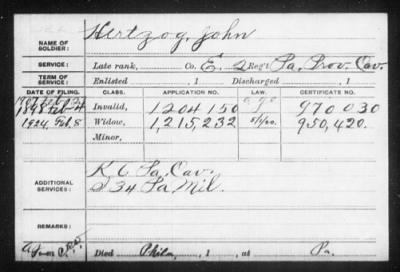 NAME OF SOLDIER: Hertzog, John
SERVICE: Late rank, Co. E, 2 Reg't Pa. Prov. Cav.
TERM OF SERVICE: Enlisted , 1 Discharged , 1
DATE OF FILING. CLASS. APPLICATION NO. LAW. CERTIFICATE NO.
Invalid, 1204150 age 970030
1924, Feb. 8 Widow, 1,215,232 950,420.
Minor,
ADDITIONAL SERVICES: K 6 Pa. Cav.
D 34 Pa. Mil.
REMARKS:
Died Phila, , 1 , at Pa.